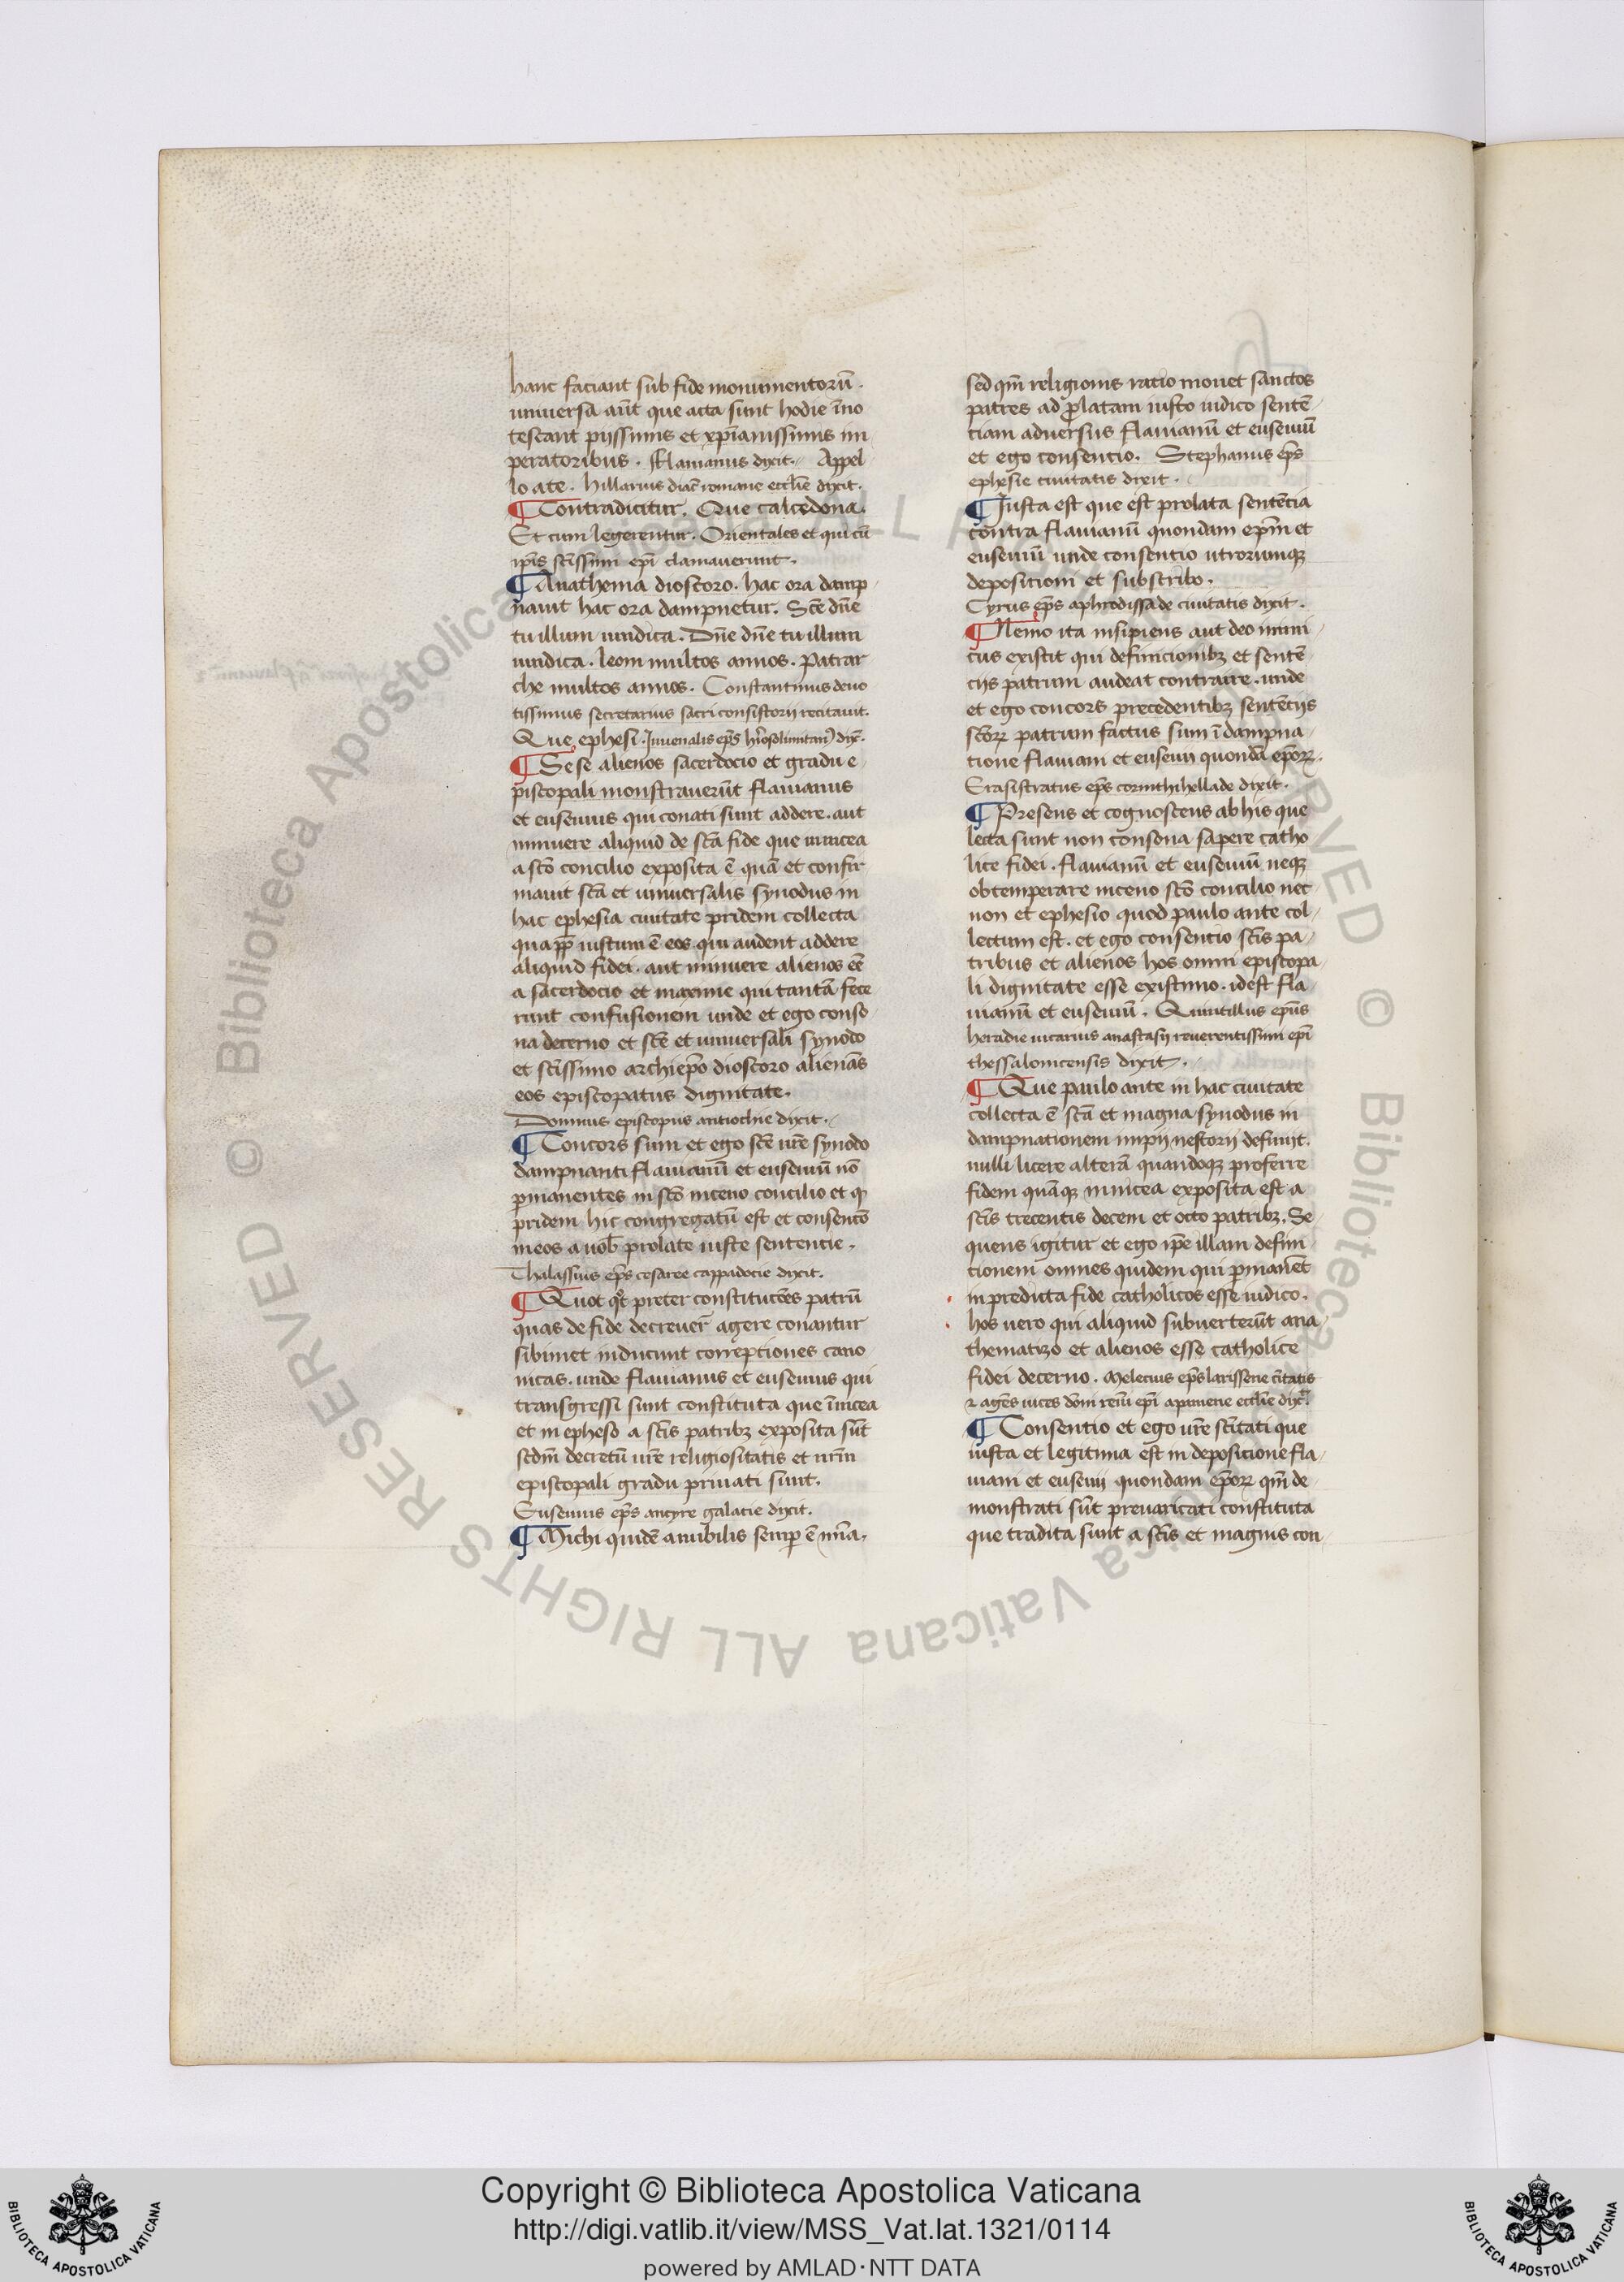 hanc faciant sub fide monumentorū.
uniuersa aūt que acta sunt hodie īno
tescant pijssimis et xp̄ianissimis im
peratoribus. Flauianus dixit. Appel
lo ate. hillarius diac̄ romane eccl̄ie dixit.
¶ Contradicitur. Que calcedona.
Et cum legerentur. Orientales et qui cū
ip̄is sc̄issimi ep̄i clamauerunt.
¶ Anathema dioscoro. hac ora damp
nauit hac ora dampnetur. Sc̄e dn̄e
tu illum uindica. Dn̄e dn̄e tu illum
uindica. leom multos annos. patriar
che multos annos. Constantinus deuo
tissimus secretarius sacri consistorij recitauit.
Que ephesi. Iuuenalis ep̄s hi̅rosolimitan̄ dix̄.
¶ Se se alienos sacerdocio et gradu e
piscopali monstrauerūt flauianus
et eusebius qui conati sunt addere. aut
minuere aliquid de sc̄a fide que innicea
a sc̄o concilio exposita ē quā et confir
mauit sc̄a et uniuersalis synodus in
hac ephesia ciuitate pridem collecta
quapp̄ iustum ē eos qui audent addere
aliquid fidei. aut minuere alienos eē
a sacerdocio et maxime qui tantā fece
runt confusionem unde et ego conso
na decerno et sc̄e et uniuersali synodo
et sc̄issimo archiep̄o dioscoro alienās
eos episcopatus dignitate.
Domnus episcopus antiochie dixit.
¶ Concors sum et ego sc̄e ur̄e synodo
dampnanti flauianū et eusebiū nō
ꝑmanentes in sc̄o niceno concilio et qͥ
pridem hic congregatū est et consentio
in eos a uob̄ prolate iuste sentencie.
Thalassius ep̄s cesaree cappadocie dixit.
¶ Quot qͦt preter constitucōes patrū
quas de fide decreuer̄ agere conantur
sibimet inducunt correptiones cano
nicas. unde flauianus et eusebius qui
transgressi sunt constituta que īnicea
et in epheso a sc̄is patribꝫ exposita sūt
scdm̄ decretū ur̄e religiositatis et nr̄m
episcopali gradu priuati sunt.
Eusebius ep̄s ancyre galatie dixit.
¶ Michi quidē amibilis semꝑ ē mīa.
sed qm̄ religionis ratio mouet sanctos
patres ad ꝓlatam iusto iudico sentē
tiam aduersus flauianū et eusebiū
et ego consentio. Stephanus ep̄s
ephesie ciuitatis dixit.
¶ Iusta est que est prolata sentētia
contra flauianū quondam ep̄m et
eusebiū unde consentio utrorumqꝫ
depositioni et subscribo.
Cyrus ep̄s aphrodissade ciuitatis dixit.
¶ Nemo ita insipiens aut deo inimi
cus existit qui definicionibꝫ et sentē
cijs patrum audeat contraire. unde
et ego concors precedentibꝫ sentētijs
sc̄orꝝ patrum factus sum ī dampna
tione flauiani et eusebij quondā ep̄orꝝ.
Erasistratus ep̄s corinthi hellade dixit.
¶ Presens et cognoscens ab his que
lecta sunt non consona sapere catho
lice fidei. flauianū et eusebiū neqꝫ
obtemperare niceno sc̄o concilio nec
non et ephesio quod paulo ante col
lectum est. et ego consentio sc̄is pa
tribus et alienos hos omni episcopa
li dignitate esse existimo. idest fla
uianū et eusebiū. Quintillus ep̄us
heraclie uicarius anastasij reuerentissimi ep̄i
thessalonicensis dixit.
¶ Que paulo ante in hac ciuitate
collecta ē sc̄a et magna synodus in
dampnationem impij nestorij definijt.
nulli licere alterā quandoqꝫ proferre
fidem quāqꝫ innicea exposita est a
sc̄is trecentis decem et octo patribꝫ. Se
quens igitur et ego ip̄e illam defini
tionem omnes quidem qui ꝑmanēt
in predicta fide catholicos esse iudico.
hos uero qui aliquid subuerterūt ana
thematizo et alienos esse catholice
fidei decerno. Melecius ep̄s larissene ci̅tatis
⁊ agēs uices dōm reiu̅ ep̄i apamene eccl̄ie dix̄.
¶ Consentio et ego ur̄e sc̄itati que
iusta et legitima est in deposicione fla
uiani et eusebij quondam ep̄orꝝ qm̄ de
monstrati sūt preuaricati constituta
que tradita sunt a sc̄is et magnis con
© Biblioteca Apostolica Vaticana ALL RIGHTS RESERVED © Biblioteca Apostolica Vaticana ALL RIGHTS RESERVED
Copyright © Biblioteca Apostolica Vaticana
http://digi.vatlib.it/view/MSS_Vat.lat.1321/0114
powered by AMLAD·NTT DATA
BIBLIOTECA APOSTOLICA VATICANA
BIBLIOTECA APOSTOLICA VATICANA